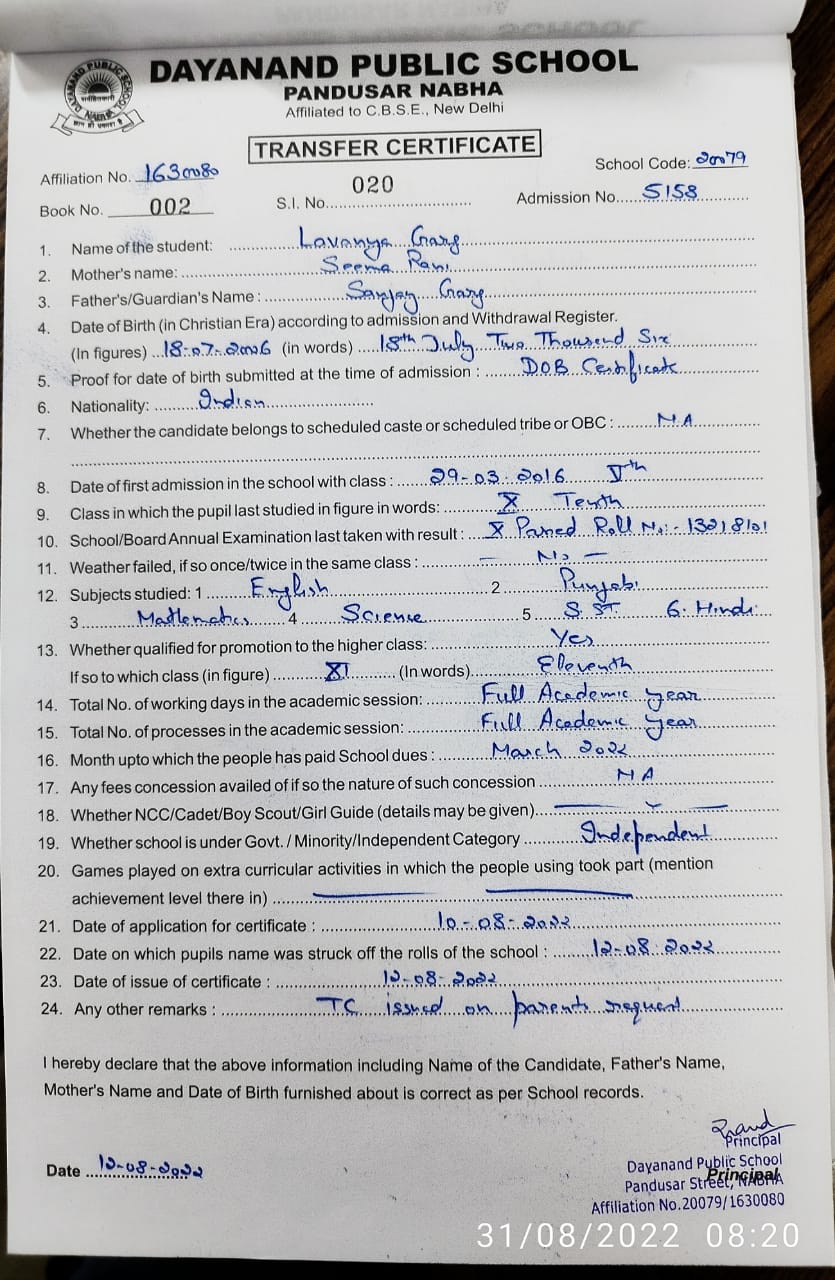 DAYANAND PUBLIC SCHOOL
PANDUSAR NABHA
Affiliated to C.B.S.E., New Delhi
TRANSFER CERTIFICATE
Affiliation No. 1630080 School Code: 20079
Book No. 002 S.I. No. 020 Admission No. 5158
1. Name of the student: Lavanya Garg
2. Mother's name: Seema Rani
3. Father's/Guardian's Name : Sanjay Garg
4. Date of Birth (in Christian Era) according to admission and Withdrawal Register.
(In figures) 18-07-2006 (in words) 18th July Two Thousand Six
5. Proof for date of birth submitted at the time of admission : DOB Certificate
6. Nationality: Indian
7. Whether the candidate belongs to scheduled caste or scheduled tribe or OBC : NA
8. Date of first admission in the school with class : 29-03-2016 Vth
9. Class in which the pupil last studied in figure in words: X Tenth
10. School/Board Annual Examination last taken with result : X Passed Roll No:- 13218101
11. Weather failed, if so once/twice in the same class : — No —
12. Subjects studied: 1 English 2 Punjabi
3 Mathematics 4 Science 5 S.ST 6. Hindi
13. Whether qualified for promotion to the higher class: Yes
If so to which class (in figure) XI (In words) Eleventh
14. Total No. of working days in the academic session: Full Academic year
15. Total No. of processes in the academic session: Full Academic year
16. Month upto which the people has paid School dues : March 2022
17. Any fees concession availed of if so the nature of such concession NA
18. Whether NCC/Cadet/Boy Scout/Girl Guide (details may be given)
19. Whether school is under Govt. / Minority/Independent Category Independent
20. Games played on extra curricular activities in which the people using took part (mention
achievement level there in)
21. Date of application for certificate : 10-08-2022
22. Date on which pupils name was struck off the rolls of the school : 12-08-2022
23. Date of issue of certificate : 12-08-2022
24. Any other remarks : TC issued on parents request
I hereby declare that the above information including Name of the Candidate, Father's Name,
Mother's Name and Date of Birth furnished about is correct as per School records.
Principal
Date 12-08-2022 Dayanand Public School
Principal
Pandusar Street, NABHA
Affiliation No.20079/1630080
31/08/2022 08:20